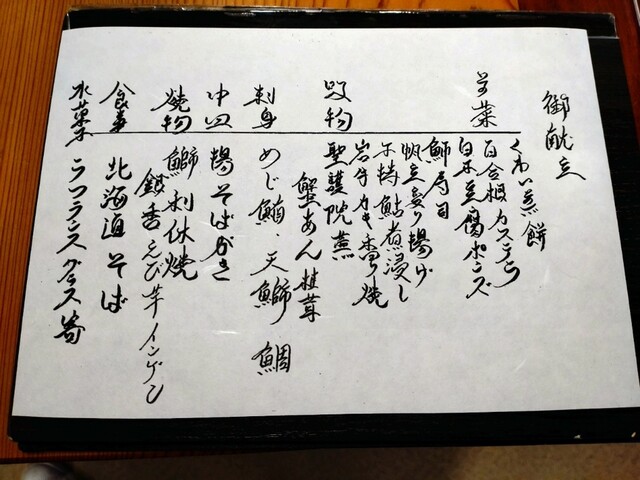 御献立
前菜
くわい煎餅
百合根カステラ
白子豆腐ポンズ
鰤寿司
帆立変り揚げ
子持鮎煮浸し
岩手カキ香り焼
吸物
聖護院蕪
蟹あん 椎茸
刺身
めじ鮪・天鰤 鯛
中皿
揚そばがき
焼物
鰤利休焼
銀杏 えび芋 インゲン
食事
北海道そば
水菓子
ラフランスグラス寄